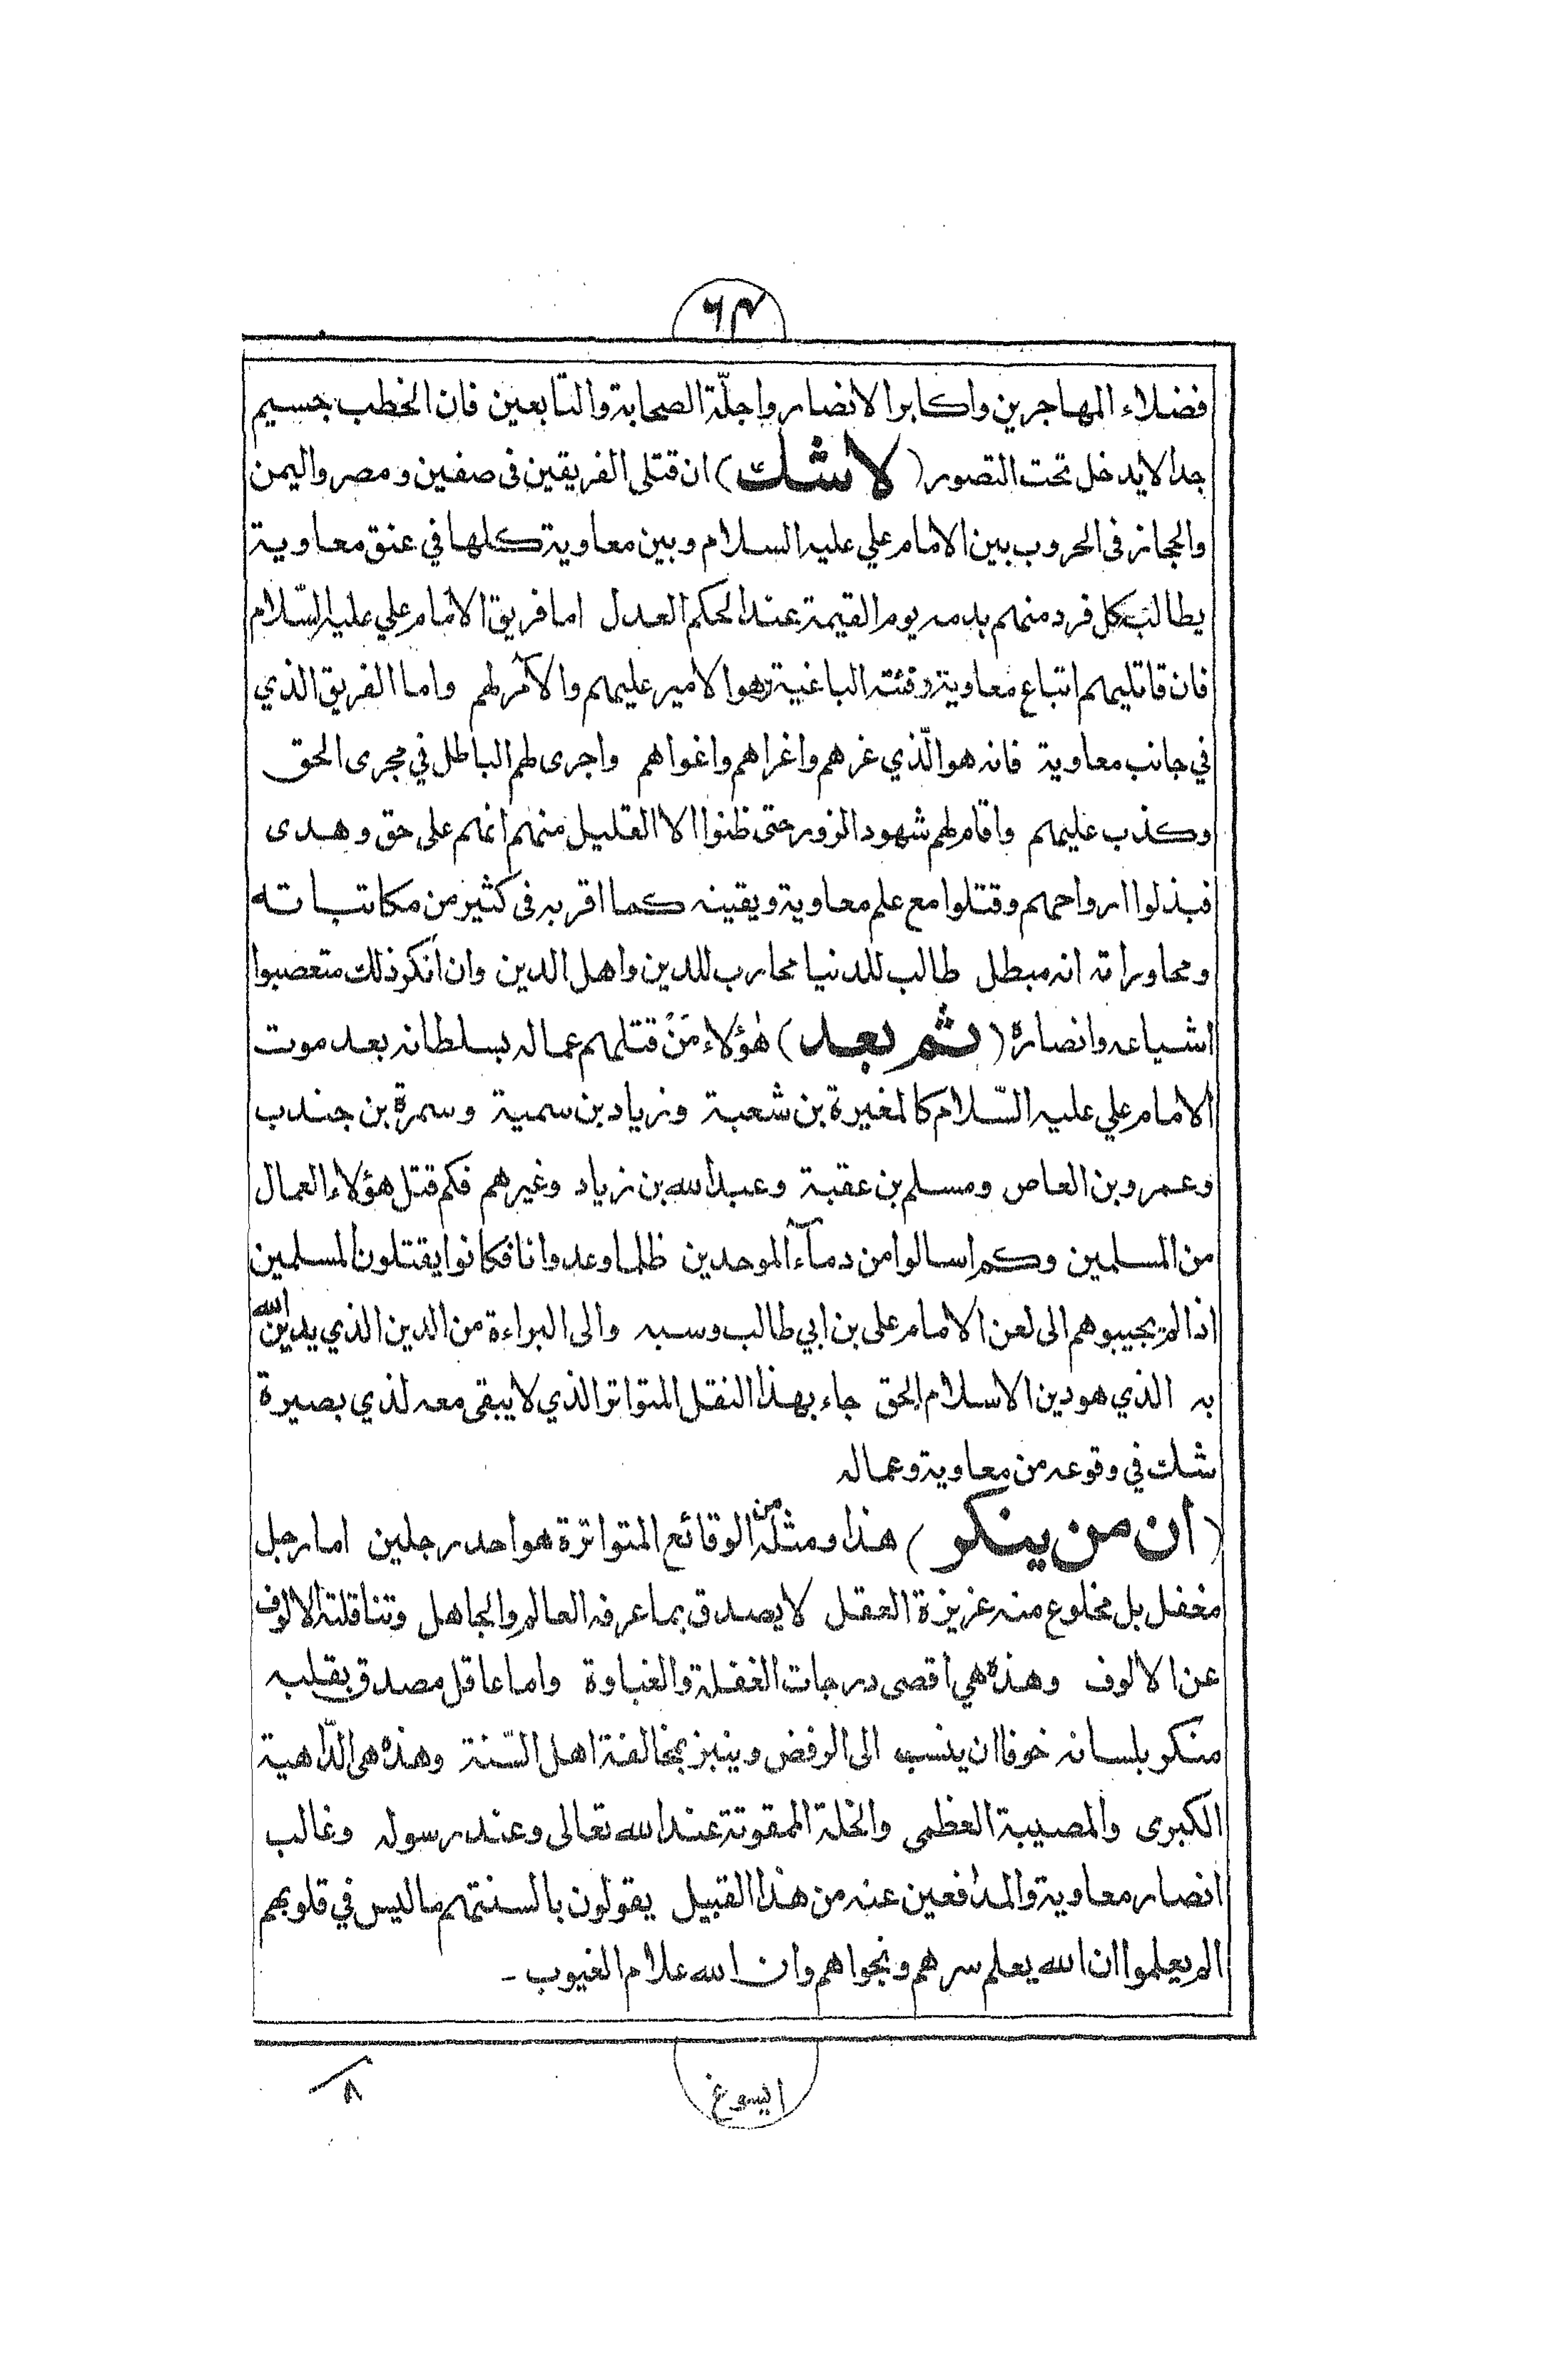 ٦٤
فضلاء المهاجرين واكابر الانصار واجلّة الصحابة والتّابعين فان الخطب جسيم
جدا لايدخل تحت التصور (لاشك) ان قتلى الفريقين فى صفين ومصر واليمن
والحجاز فى الحروب بين الامام علي عليه السلام وبين معاوية كلها في عنق معاوية
يطالبه كل فرد منهم بدمه يوم القيمة عند الحكم العدل اما فريق الامام علي عليه السّلام
فان قاتليهم اتباع معاوية وفئته الباغية وهو الامير عليهم والآمر لهم واما الفريق الذي
في جانب معاوية فانه هو الّذي غرهم واغراهم واغواهم واجرى لهم الباطل في مجرى الحق
وكذب عليهم واقام لهم شهود الزور حتى ظنوا الا القليل منهم انهم على حق وهدى
فبذلوا ارواحهم وقتلوا مع علم معاوية ويقينه كما اقر به فى كثير من مكاتباته
ومحاوراته انه مبطل طالب للدنيا محارب للدين واهل الدين وان انكر ذلك متعصبوا
اشياعه وانصاره (ثم بعد) هؤلاء مَنْ قتلهم عماله بسلطانه بعد موت
الامام علي عليه السّلام كالمغيرة بن شعبة وزياد بن سمية وسمرة بن جندب
وعمرو بن العاص ومسلم بن عقبة وعبيدالله بن زياد وغيرهم فكم قتل هؤلاء العمال
من المسلمين وكم اسالوا من دمآء الموحدين ظلما وعدوانا فكانوا يقتلون المسلمين
اذا لم يجيبوهم الى لعن الامام على بن ابي طالب وسبه والى البراءة من الدين الذي يدين الله
به الذي هو دين الاسلام الحق جاء بهذا النقل المتواتر الذي لا يبقى معه لذي بصيرة
شك في وقوعه من معاوية وعماله
(ان من ينكر) هذا ومثله من الوقائع المتواترة هو احد رجلين اما رجل
مغفل بل مخلوع منه غريزة العقل لا يصدق بما عرفه العالم والجاهل وتناقلته الالوف
عن الالوف وهذه هي اقصى درجات الغفلة والغباوة واما عاقل مصدق بقلبه
منكر بلسانه خوفا ان ينسب الى الرفض وينبز بمخالفة اهل السّنة وهذه هى الدّاهية
الكبرى والمصيبة العظمى والخلة الممقوتة عند الله تعالى وعند رسوله وغالب
انصار معاوية والمدافعين عنه من هذا القبيل يقولون بالسنتهم ما ليس في قلوبهم
الم يعلموا ان الله يعلم سرهم ونجواهم وان الله علام الغيوب -
ايسوغ
٨